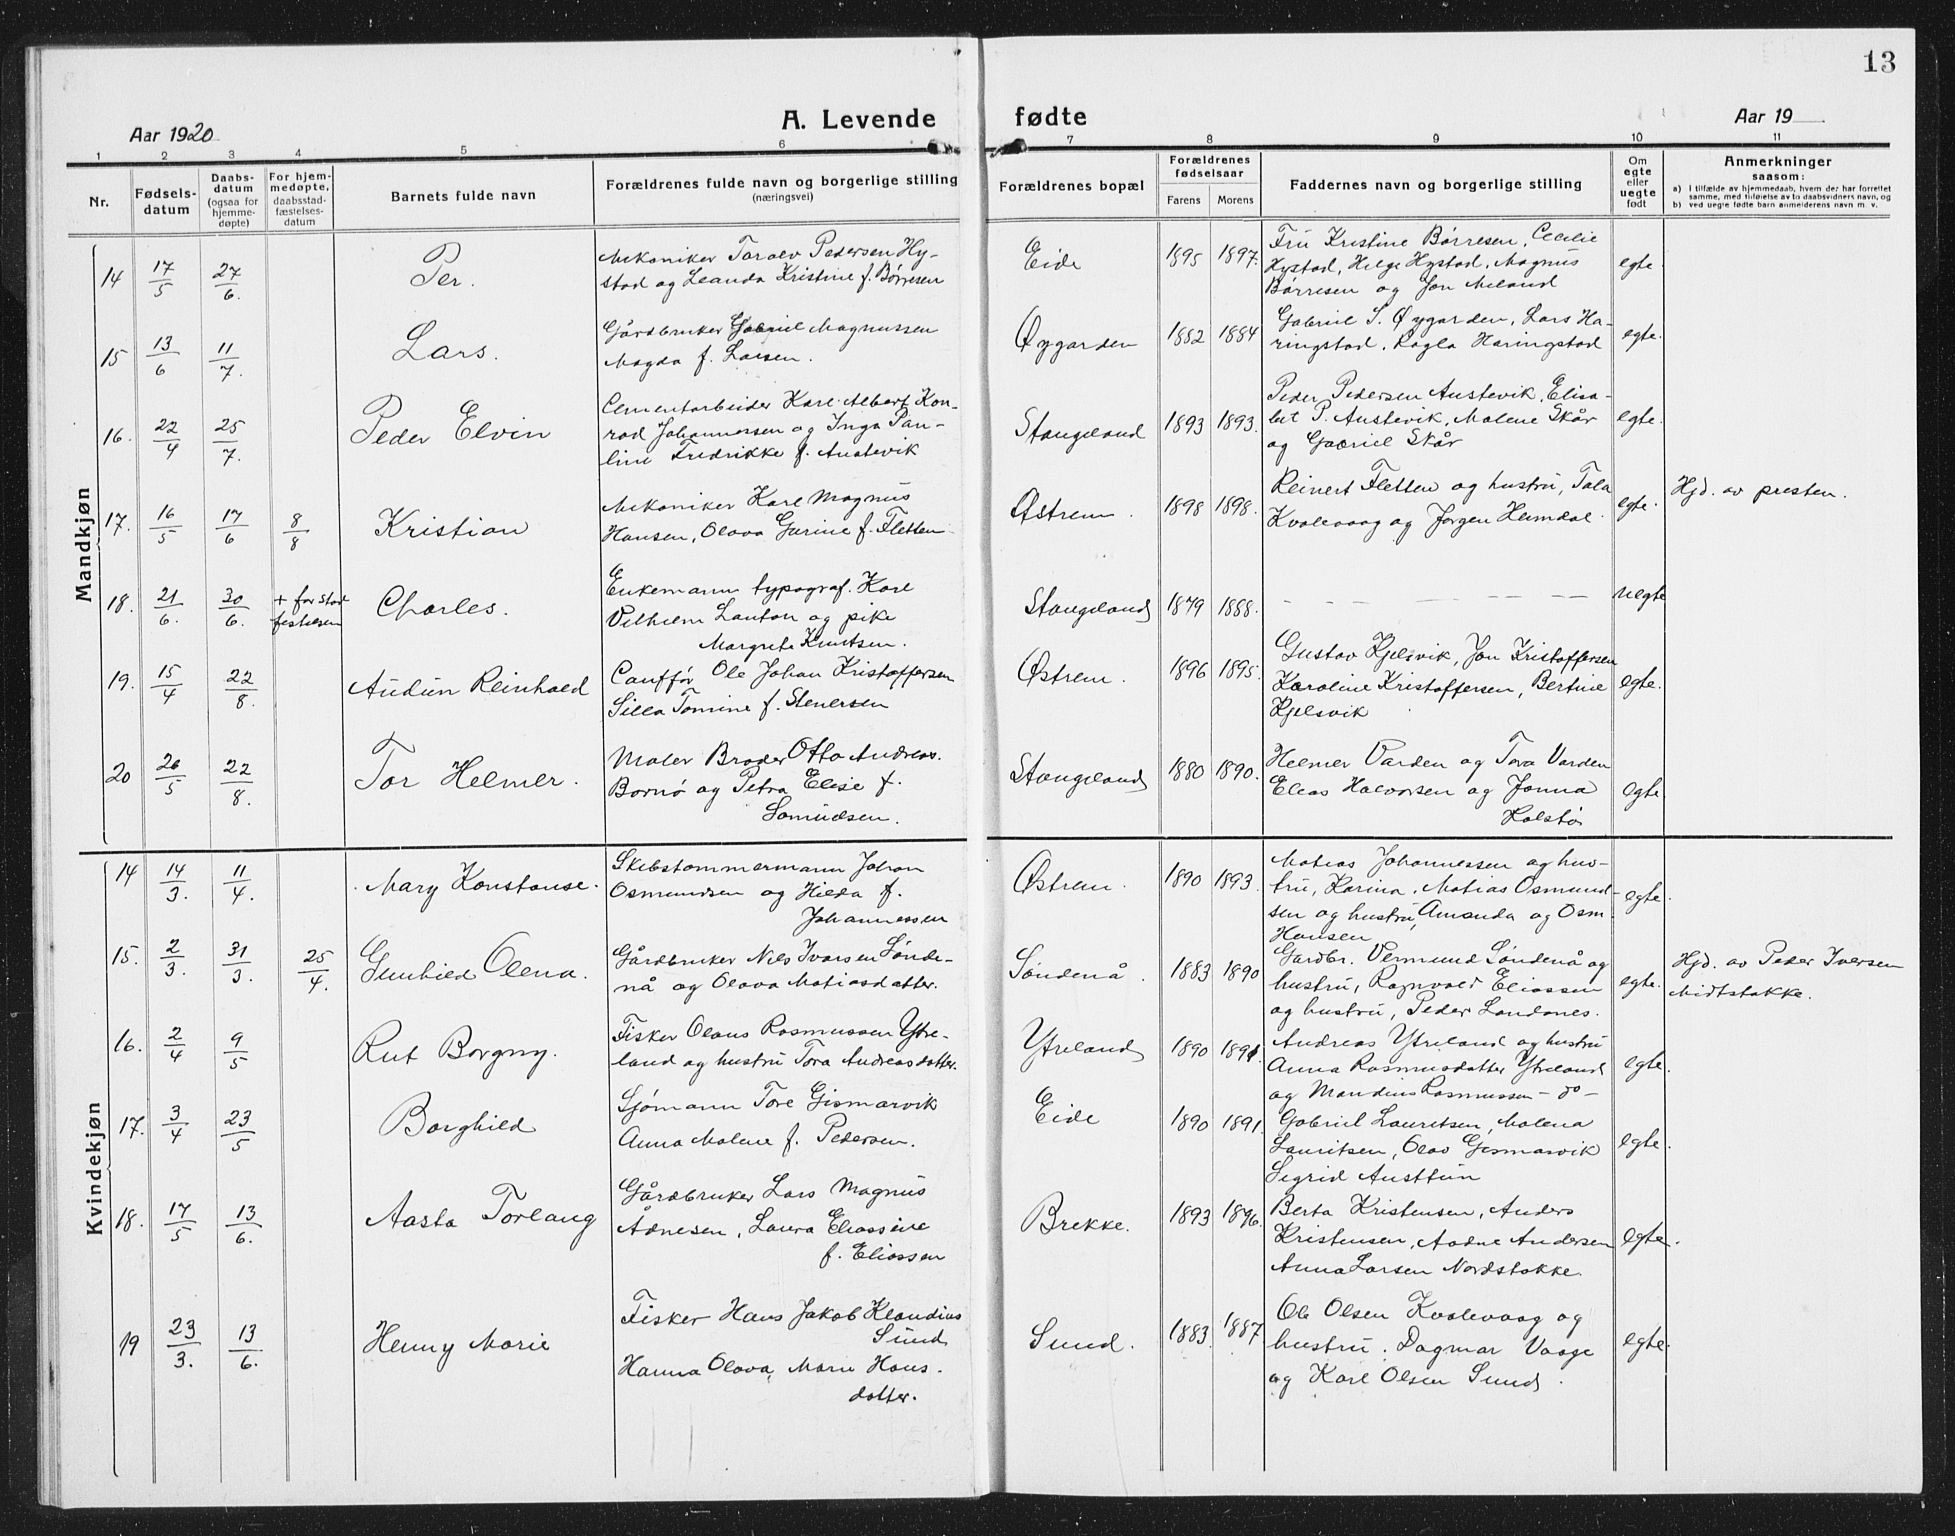 13
Aar 1920
A. Levende fødte
Aar 19
1 2 3 4 5 6 7 8 9 10 11
Nr.
Fødsels-
datum
Daabs-
datum
(ogsaa for
hjemme-
døpte)
For hjem-
medøpte,
daabsstad-
fæstelses-
datum
Barnets fulde navn
Forældrenes fulde navn og borgerlige stilling
(næringsvei)
Forældrenes bopæl
Forældrenes
fødselsaar
Farens Morens
Faddernes navn og borgerlige stilling
Om
egte
eller
uegte
født
Anmerkninger
saasom:
a) I tilfælde av hjemmedaab, hvem der har forrettet
samme, med tilføielse av to daabsvidners navn, og
b) ved uegte fødte barn anmelderens navn m. v.
Mandkjøn
14 17/5 27/6. Per.
Mekaniker Toralv Pedersen Hy-
stad og Leanda Kristine f. Børresen
Eide 1895 1897.
Fru Kristine Børresen, Cecilie
Hystad, Helge Hystad, Magnus
Børresen og Jon Meland
egte.
15 13/6 11/7. Lars.
Gårdbruker Gabriel Magnussen
Magda f. Larsen.
Øygarden 1882 1884
Gabriel S. Øygarden, Lars Ha-
ringstad, Ragla Haringstad
egte.
16. 22/4 25/7. Peder Elvin
Cementarbeider Karl Albert Kon-
rad Johannessen og Inga Pau-
line Fredrikke f. Austevik
Stangeland 1893 1893.
Peder Pedersen Austevik, Elisa-
bet P. Austevik, Malene Skår
og Gabriel Skår
egte.
17. 16/5 17/6 8/8 Kristian
Mekaniker Karl Magnus
Hansen, Olava Gurine f. Fletten
Østrem. 1898 1898.
Reinert Fletten og hustru, Tala
Kvalevaag og Jørgen Hemdal.
egte.
Hjd. av presten.
18. 21/6. 30/6. + før stad
festelsen
Charles.
Enkemann typograf. Karl
Vilhelm Lauton og pike
Margrete Knutsen.
Stangeland 1879 1888.
— — — — — — —
uegte
19. 15/4 22/8. Audun Reinhold
Cauffør Ole Johan Kristoffersen
Silla Tomine f. Stenersen
Østrem. 1896 1895.
Gustav Kjelsvik, Jon Kristoffersen
Karoline Kristoffersen, Bertine
Kjelsvik
egte.
20 26/5 22/8. Tor Helmer.
Maler Broder Otto Andreas.
Bornø og Petra Elise f.
Samuelsen.
Stangeland 1880 1890.
Helmer Varden og Tora Varden
Elias Halvorsen og Jonna
Holstø
egte
Kvindekjøn
14 14/3. 11/4. Mary Konstanse.
Skibstømmermann Johan
Osmundsen og Hilda f.
Johannessen
Østrem. 1890 1893.
Matias Johannessen og hus-
tru, Karina, Matias Osmund-
sen og hustru, Amanda og Osm.
Hansen
egte.
15. 2/3. 31/3. 25/4. Gunhild Olena.
Gårdbruker Nils Ivarsen Sønde-
nå og Olava Matiasdatter.
Søndenå. 1883 1890
Gardbr. Vermund Søndenå og
hustru, Ragnvald Eliassen
og hustru, Peder Sandanes.
egte.
Hjd. av Peder Iversen
Midtstokke.
16. 2/4 9/5 Rut Borgny.
Fisker Olaus Rasmussen Ytre-
land og hustru Tora Andreasdatter.
Ytreland 1890 1891.
Andreas Ytreland og hustru
Anna Rasmusdatter Ytreland
og Mandius Rasmussen – do –
egte.
17. 3/4 23/5 Borghild
Sjømann Tore Gismarvik
Anna Malene f. Pedersen.
Eide 1890 1891.
Gabriel Lauritsen, Malena
Lauritsen, Olav Gismarvik
Sigrid Austtun
egte.
18. 17/5 13/6. Aasta Torlaug
Gårdbruker Lars Magnus
Ådnesen, Laura Eliassine
f. Eliassen
Brekke. 1893 1896.
Berta Kristensen, Anders
Kristensen, Aadne Andersen
Anna Larsen Nordstokke.
egte.
19 23/3. 13/6. Henny Marie
Fisker Hans Jakob Klaudius
Sund
Hanna Olava, Marie Hans.
datter.
Sund. 1883. 1887
Ole Olsen Kvalevaag og
hustru. Dagmar Vaage
og Karl Olsen Sund.
egte.